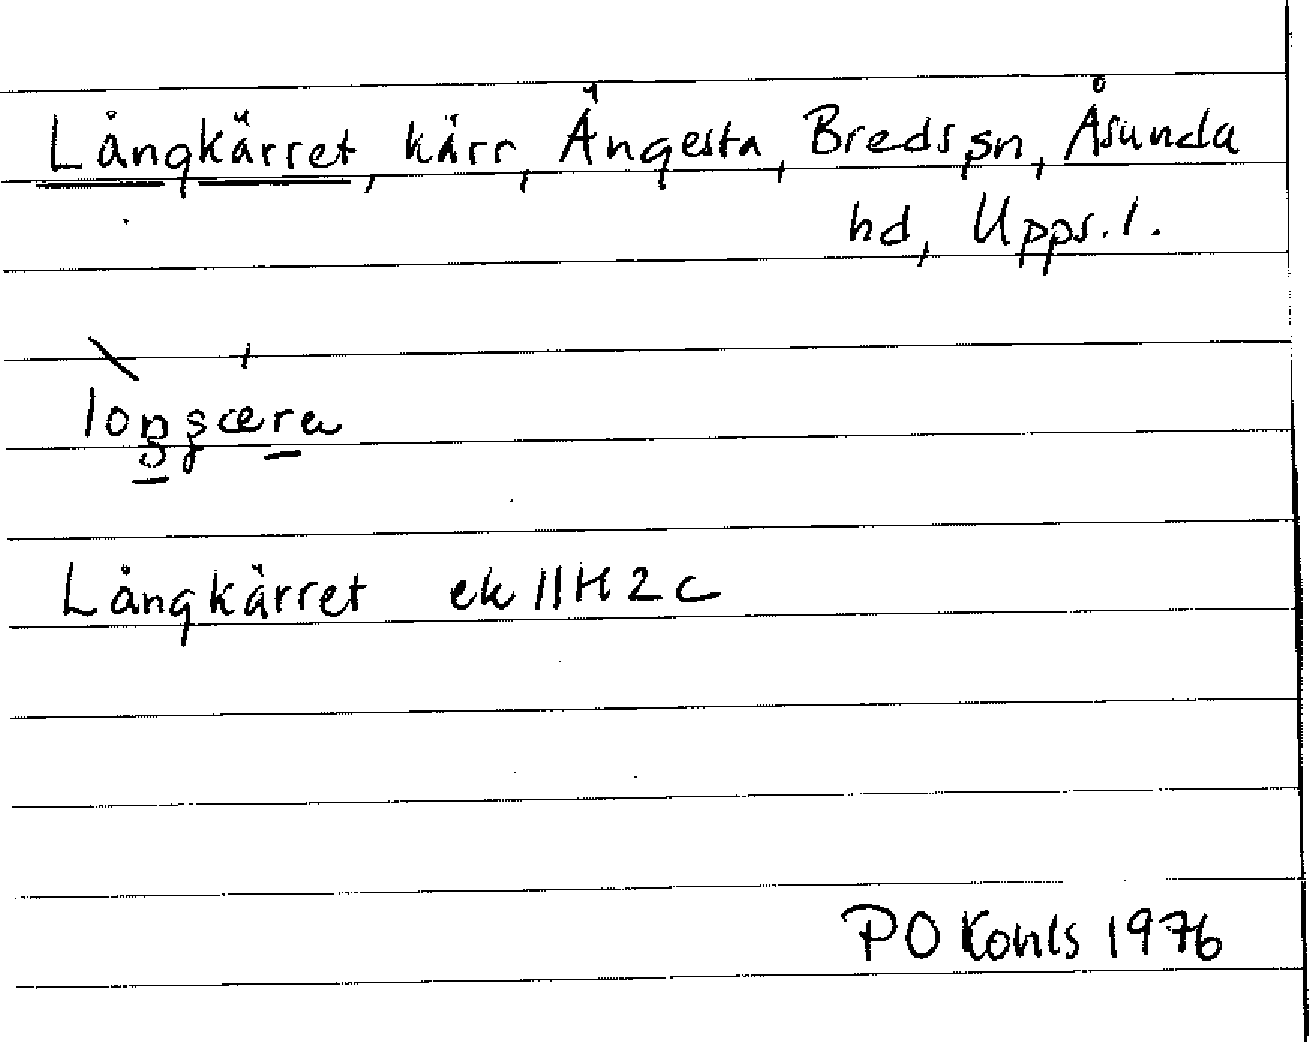 Långkärret, kärr, Ängesta, Breds sn, Åsunda
hd, Upps. l.
Långkärret ek 11H2c
PO Kohls 1976